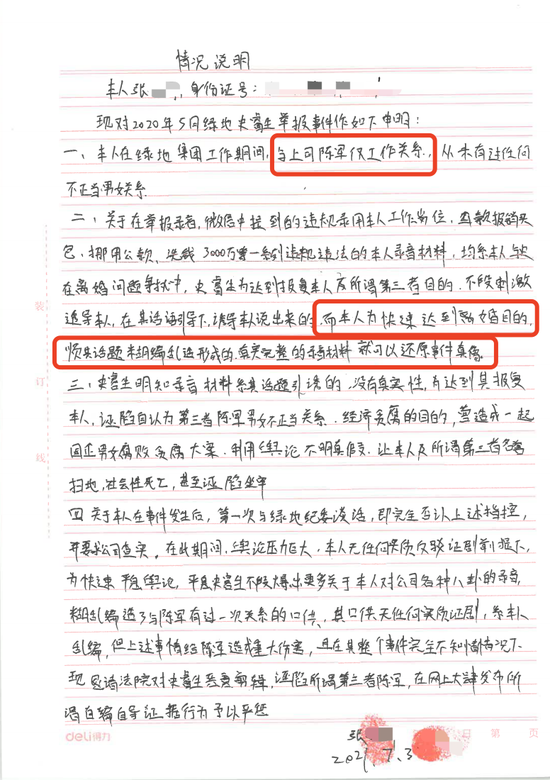 情况说明
本人张 ,身份证号:
现对2020年5月绿地史富生举报事件作如下申明:
一、本人在绿地集团工作期间,与上司陈军仅工作关系,从未有过任何
不正当男女关系
二、关于在举报录音,微信中提到的违规录用本人工作岗位,函数报销
包,挪用公款,洗钱3000万第一系列违规违法的本人录音材料,均系本人与史
在离婚问题争执中,史富生为达到报复本人及所谓第三者目的,不段刺激
诱导本人,在其话语引导下,诱导本人说出来的,而本人为快速达到离婚目的,
顺其话题来胡编乱造形成的,有实完整的录音材料就可以还原事件真像
三、史富生明知录音材料系其话题引诱的,没有真实性,为达到其报复
本人,诬陷自认为第三者陈军男女不正当关系,经济贪腐的目的,营造成一起
因不正男女腐败贪腐大案,利用舆论不明真假意,让本人及所谓第三者名誉
扫地,社会性死亡,甚至诬陷坐牢
四 关于本人在事件发生后,第一次与绿地纪委谈话,即完全否认上述指控,
并要求公司查实。在此期间,舆论压力巨大,本人无任何实质反驳证剧前提下,
为快速平息舆论,平息史富生不段爆出更多关于本人对公司各种八卦的录音,
糊乱编造了与陈军有过一次关系的口供,其口供无任何实质证剧,系本人
乱编,但上述事情给陈军造成重大伤害,且在其整个事件完全不知情情况下
现恳请法院对史富生恶意剪辑,诬陷所谓第三者陈军,在网上大肆发布所
谓自编自导证据行为予以平冤
张
2021.7.3
装
订
线
deli得力
日 第 页